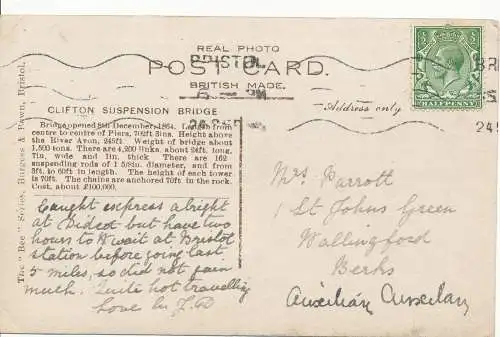 REAL PHOTO
BRISTOL
POST CARD.
BRITISH MADE.
HALFPENNY
Address only
CLIFTON SUSPENSION BRIDGE
Bridge opened 8th December, 1864. Length from
centre to centre of Piers, 702ft 3ins. Height above
the River Avon, 245ft. Weight of bridge about
1,500 tons. There are 4,200 links, about 24ft. long,
7in, wide and 1in, thick. There are 162
suspending rods of 1 5/8in. diameter, and from
3ft. to 60ft in length. The height of each tower
is 70ft. The chains are anchored 70ft in the rock.
Cost, about £100,000.
The "Bee" Series, Burgess & Pawn, Bristol.
Caught express alright
at Didcot but have two
hours to wait at Bristol
station before going last
5 miles, so did not gain
much. Quite hot travelling
Love
Mrs Parrott
1 St Johns Green
Wallingford
Berks